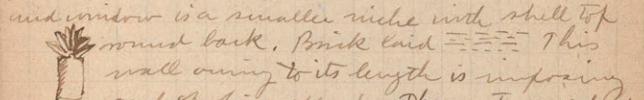 and window is a smaller niche with shell top
round back. Brick laid This
wall owing to its length is imposing